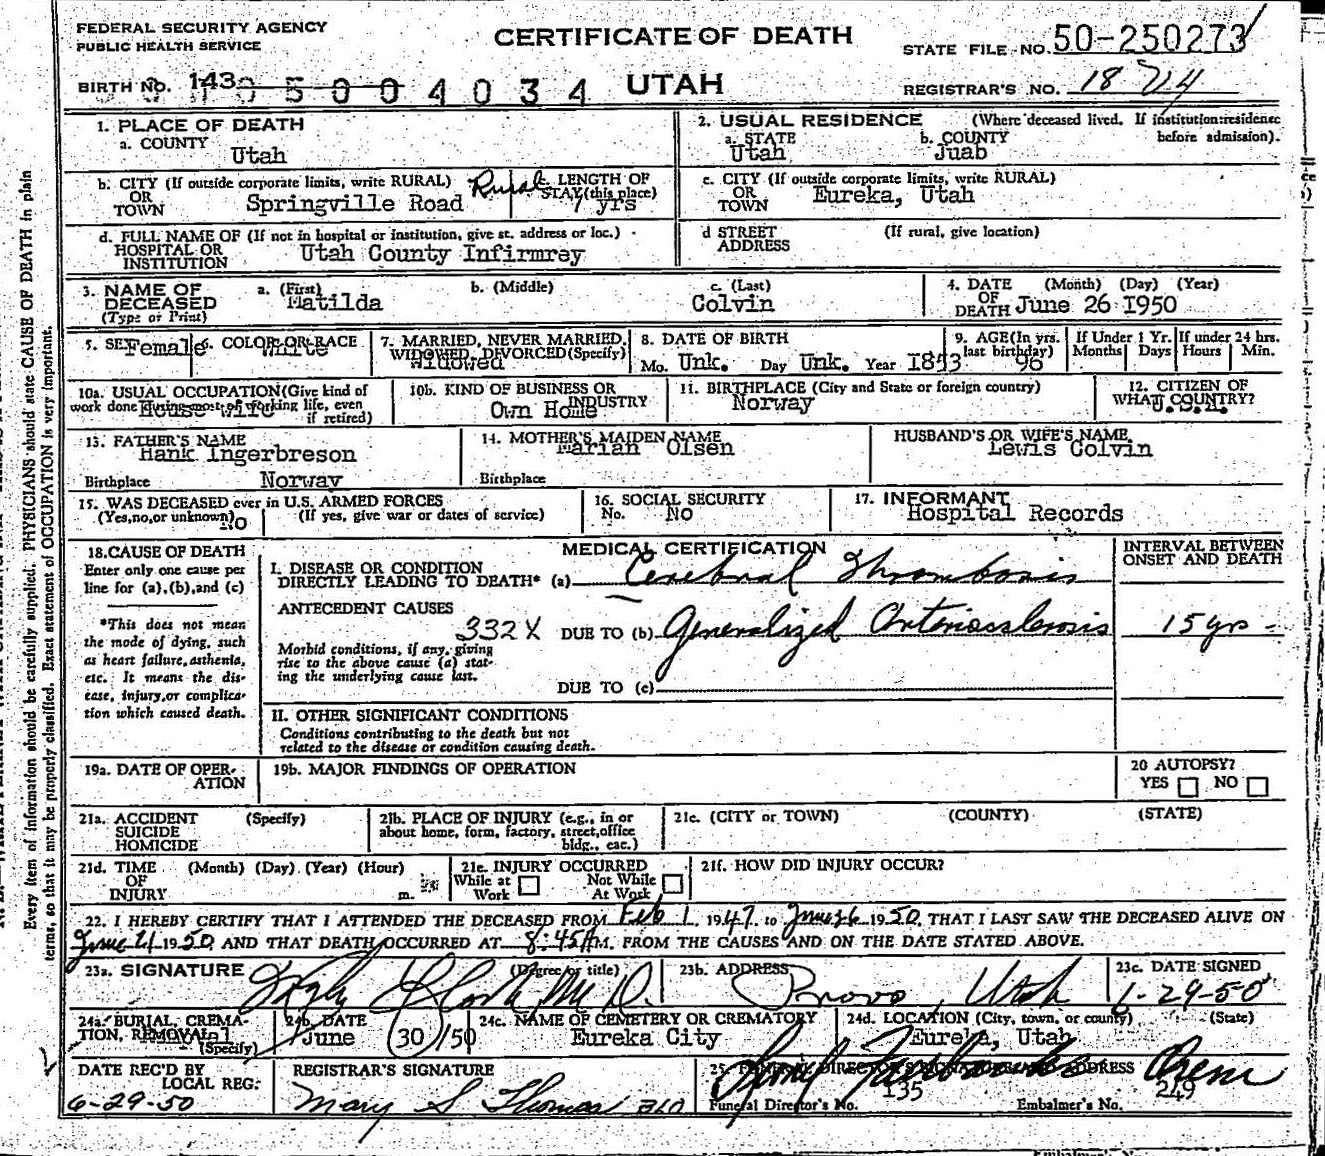 FEDERAL SECURITY AGENCY
PUBLIC HEALTH SERVICE
CERTIFICATE OF DEATH
STATE FILE NO. 50-250273
BIRTH NO. 143
5004034
UTAH
REGISTRAR'S NO. 18
1. PLACE OF DEATH
a. COUNTY
Utah
2. USUAL RESIDENCE (Where deceased lived. If institution:residence before admission).
a. STATE b. COUNTY
Utah Juab
b. CITY (If outside corporate limits, write RURAL) Rural
OR
TOWN Springville Road
LENGTH OF
STAY (this place)
7 yrs
c. CITY (If outside corporate limits, write RURAL)
OR
TOWN Eureka, Utah
d. FULL NAME OF (If not in hospital or institution, give st. address or loc.)
HOSPITAL OR
INSTITUTION Utah County Infirmrey
d STREET (If rural, give location)
ADDRESS
3. NAME OF
DECEASED
(Type or Print)
a. (First) b. (Middle) c. (Last)
Matilda Colvin
4. DATE (Month) (Day) (Year)
OF
DEATH June 26 1950
5. SEX Female
6. COLOR OR RACE White
7. MARRIED, NEVER MARRIED,
WIDOWED, DIVORCED (Specify)
Widowed
8. DATE OF BIRTH
Mo. Unk. Day Unk. Year 1853
9. AGE (In yrs.
last birthday) 96
If Under 1 Yr.
Months Days
If under 24 hrs.
Hours Min.
10a. USUAL OCCUPATION (Give kind of
work done during most of working life, even
if retired)
House wife
10b. KIND OF BUSINESS OR
INDUSTRY
Own Home
11. BIRTHPLACE (City and State or foreign country)
Norway
12. CITIZEN OF
WHAT COUNTRY?
U.S.A.
13. FATHER'S NAME
Hank Ingerbreson
Birthplace Norway
14. MOTHER'S MAIDEN NAME
Marian Olsen
Birthplace
HUSBAND'S OR WIFE'S NAME
Lewis Colvin
15. WAS DECEASED ever in U.S. ARMED FORCES
(Yes, no, or unknown) No (If yes, give war or dates of service)
16. SOCIAL SECURITY
No. No
17. INFORMANT
Hospital Records
18. CAUSE OF DEATH
Enter only one cause per
line for (a), (b), and (c)
*This does not mean
the mode of dying, such
as heart failure, asthenia,
etc. It means the dis-
ease, injury, or complica-
tion which caused death.
MEDICAL CERTIFICATION
INTERVAL BETWEEN
ONSET AND DEATH
I. DISEASE OR CONDITION
DIRECTLY LEADING TO DEATH* (a) Cerebral Thrombosis
ANTECEDENT CAUSES
332X DUE TO (b) Generalized Arteriosclerosis 15 yrs -
Morbid conditions, if any, giving
rise to the above cause (a) stat-
ing the underlying cause last.
DUE TO (c)
II. OTHER SIGNIFICANT CONDITIONS
Conditions contributing to the death but not
related to the disease or condition causing death.
19a. DATE OF OPER-
ATION
19b. MAJOR FINDINGS OF OPERATION
20 AUTOPSY?
YES NO
21a. ACCIDENT (Specify)
SUICIDE
HOMICIDE
21b. PLACE OF INJURY (e.g., in or
about home, form, factory, street, office
bldg., eac.)
21c. (CITY or TOWN) (COUNTY) (STATE)
21d. TIME (Month) (Day) (Year) (Hour)
OF
INJURY m.
21e. INJURY OCCURRED
While at Not While
Work At Work
21f. HOW DID INJURY OCCUR?
22. I HEREBY CERTIFY THAT I ATTENDED THE DECEASED FROM Feb 1, 1947 to June 26 1950, THAT I LAST SAW THE DECEASED ALIVE ON
June 21 1950 AND THAT DEATH OCCURRED AT 8:45 AM. FROM THE CAUSES AND ON THE DATE STATED ABOVE.
23a. SIGNATURE (Degree or title)
Clark M.D.
23b. ADDRESS
Provo, Utah
23c. DATE SIGNED
6-29-50
24a. BURIAL, CREMA-
TION, REMOVAL
(Specify)
Removal
24b. DATE
June 30/50
24c. NAME OF CEMETERY OR CREMATORY
Eureka City
24d. LOCATION (City, town, or county) (State)
Eureka, Utah
DATE REC'D BY
LOCAL REG.
6-29-50
REGISTRAR'S SIGNATURE
Mary S Thomas
25. FUNERAL DIRECTOR'S SIGNATURE ADDRESS
Orem
135 249
Funeral Director's No. Embalmer's No.
Every item of information should be carefully supplied. PHYSICIANS should state CAUSE OF DEATH in plain
terms, so that it may be properly classified. Exact statement of OCCUPATION is very important.